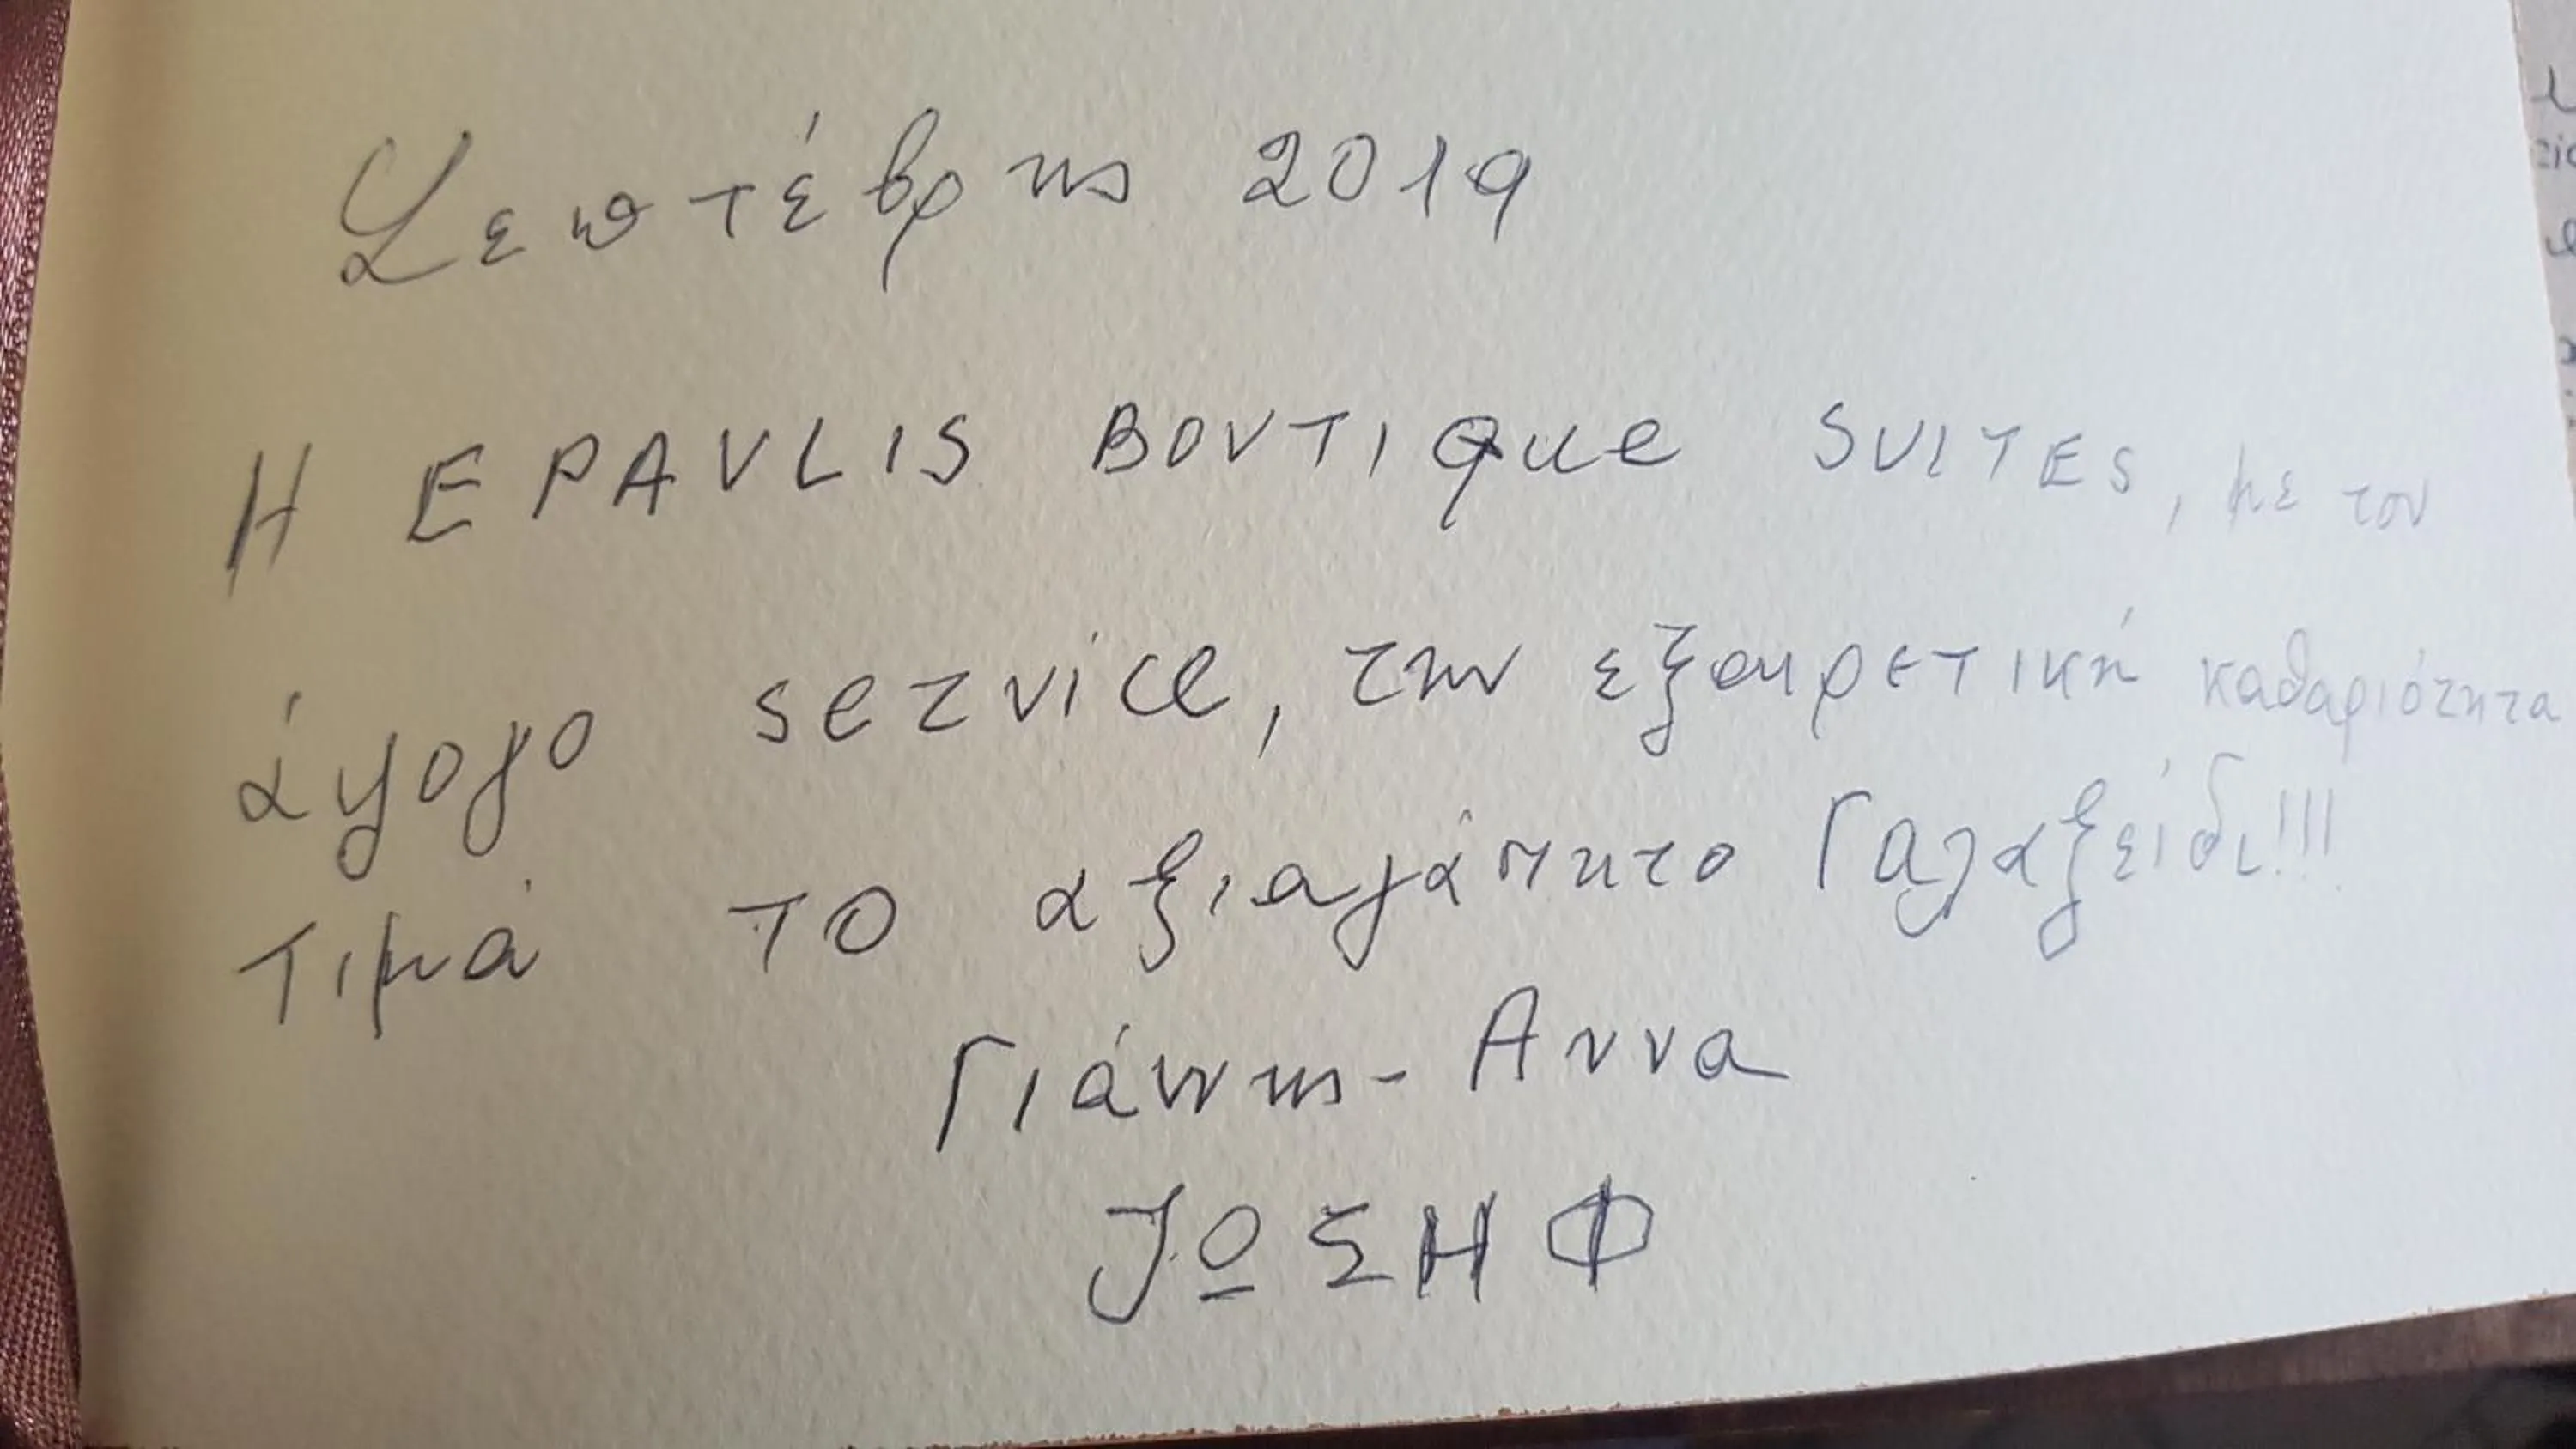 Σεπτέβρης 2019
Η EPAVLIS BOVTIque SVITES, με τον
άψογο service, την εξαιρετική καθαριότητα
τιμά το αξιαγάπητο Γαλαξείδι!!!
Γιάννης - Αννα
ΙΩΣΗΦ